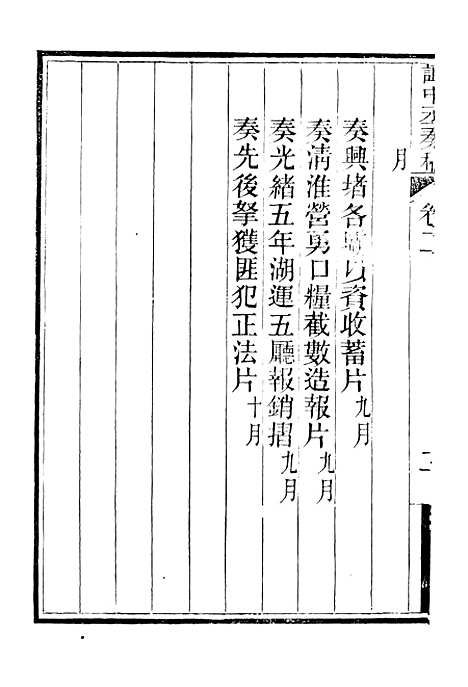 中丞奏稿 卷二
二
月
奏興堵各壩以資收蓄片九月
奏清淮營勇口糧截數造報片九月
奏光緒五年湖運五廳報銷摺九月
奏先後拏獲匪犯正法片十月